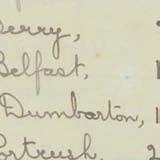 Derry,
Belfast,
Dumbarton,
Portrush,